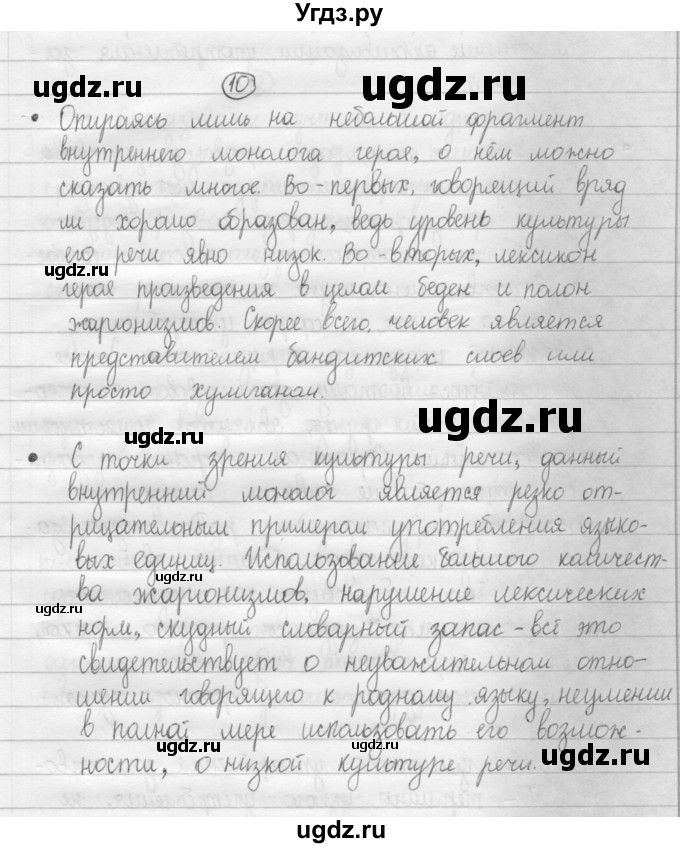 Угдз.ру
103
• Опираясь лишь на небольшой фрагмент
внутреннего монолога героя, о нём можно
сказать многое. Во-первых, говорящий вряд
ли хорошо образован, ведь уровень культуры
его речи явно низок. Во-вторых, лексикон
героя произведения в целом беден и полон
жаргонизмов. Скорее всего, человек является
представителем бандитских слоев или
просто хулиганам.
• С точки зрения культуры речи, данный
внутренний монолог является резко от-
рицательным примером употребления языко-
вых единиц. Использование большого количест-
ва жаргонизмов, нарушение лексических
норм, скудный словарный запас - всё это
свидетельствует о неуважительном отно-
шении говорящего к родному языку, неумении
в полной мере использовать его возмож-
ности, о низкой культуре речи.
ugdz.ru
ugdz.ru
ugdz.ru
ugdz.ru
ugdz.ru
ugdz.ru
ugdz.ru
ugdz.ru
ugdz.ru
ugdz.ru
ugdz.ru
ugdz.ru
ugdz.ru